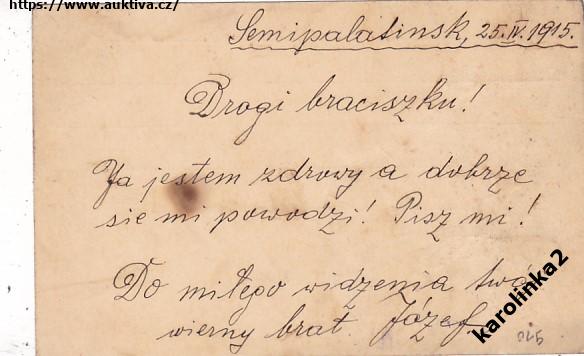 https://www.auktiva.cz/
Semipalatinsk, 25.IV.1915.
Drogi braciszku!
Ja jestem zdrowy a dobrze
sie mi powodzi! Pisz mi!
Do miłego widzenia twó
wierny brat. Józef
karolinka2